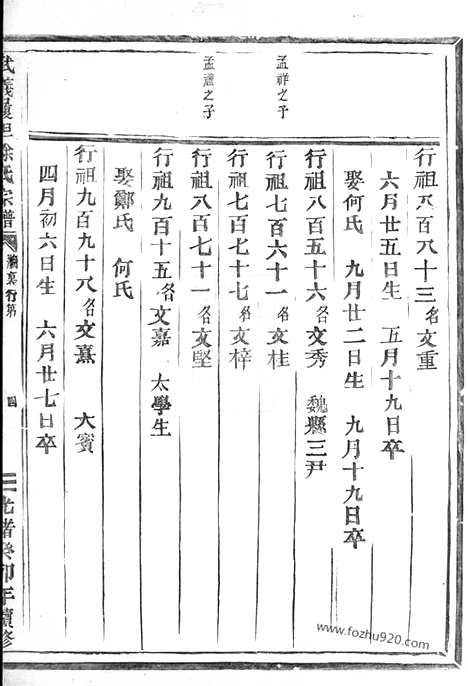 行祖八百八十三名文重
六月廿五日生　五月十九日卒
娶何氏　九月廿二日生　九月十九日卒
行祖八百五十六名文秀　魏縣三尹
孟祥之子
行祖七百六十一名文桂
行祖七百七十七名文梓
孟蘆之子
行祖八百七十一名文堅
行祖九百十五名文嘉　太學生
娶鄭氏　何氏
行祖九百九十八名文熹　大賓
四月初六日生　六月廿七日卒
武義 徐氏宗譜　行第　四　光緒癸卯年續修
www.fozhu920.com